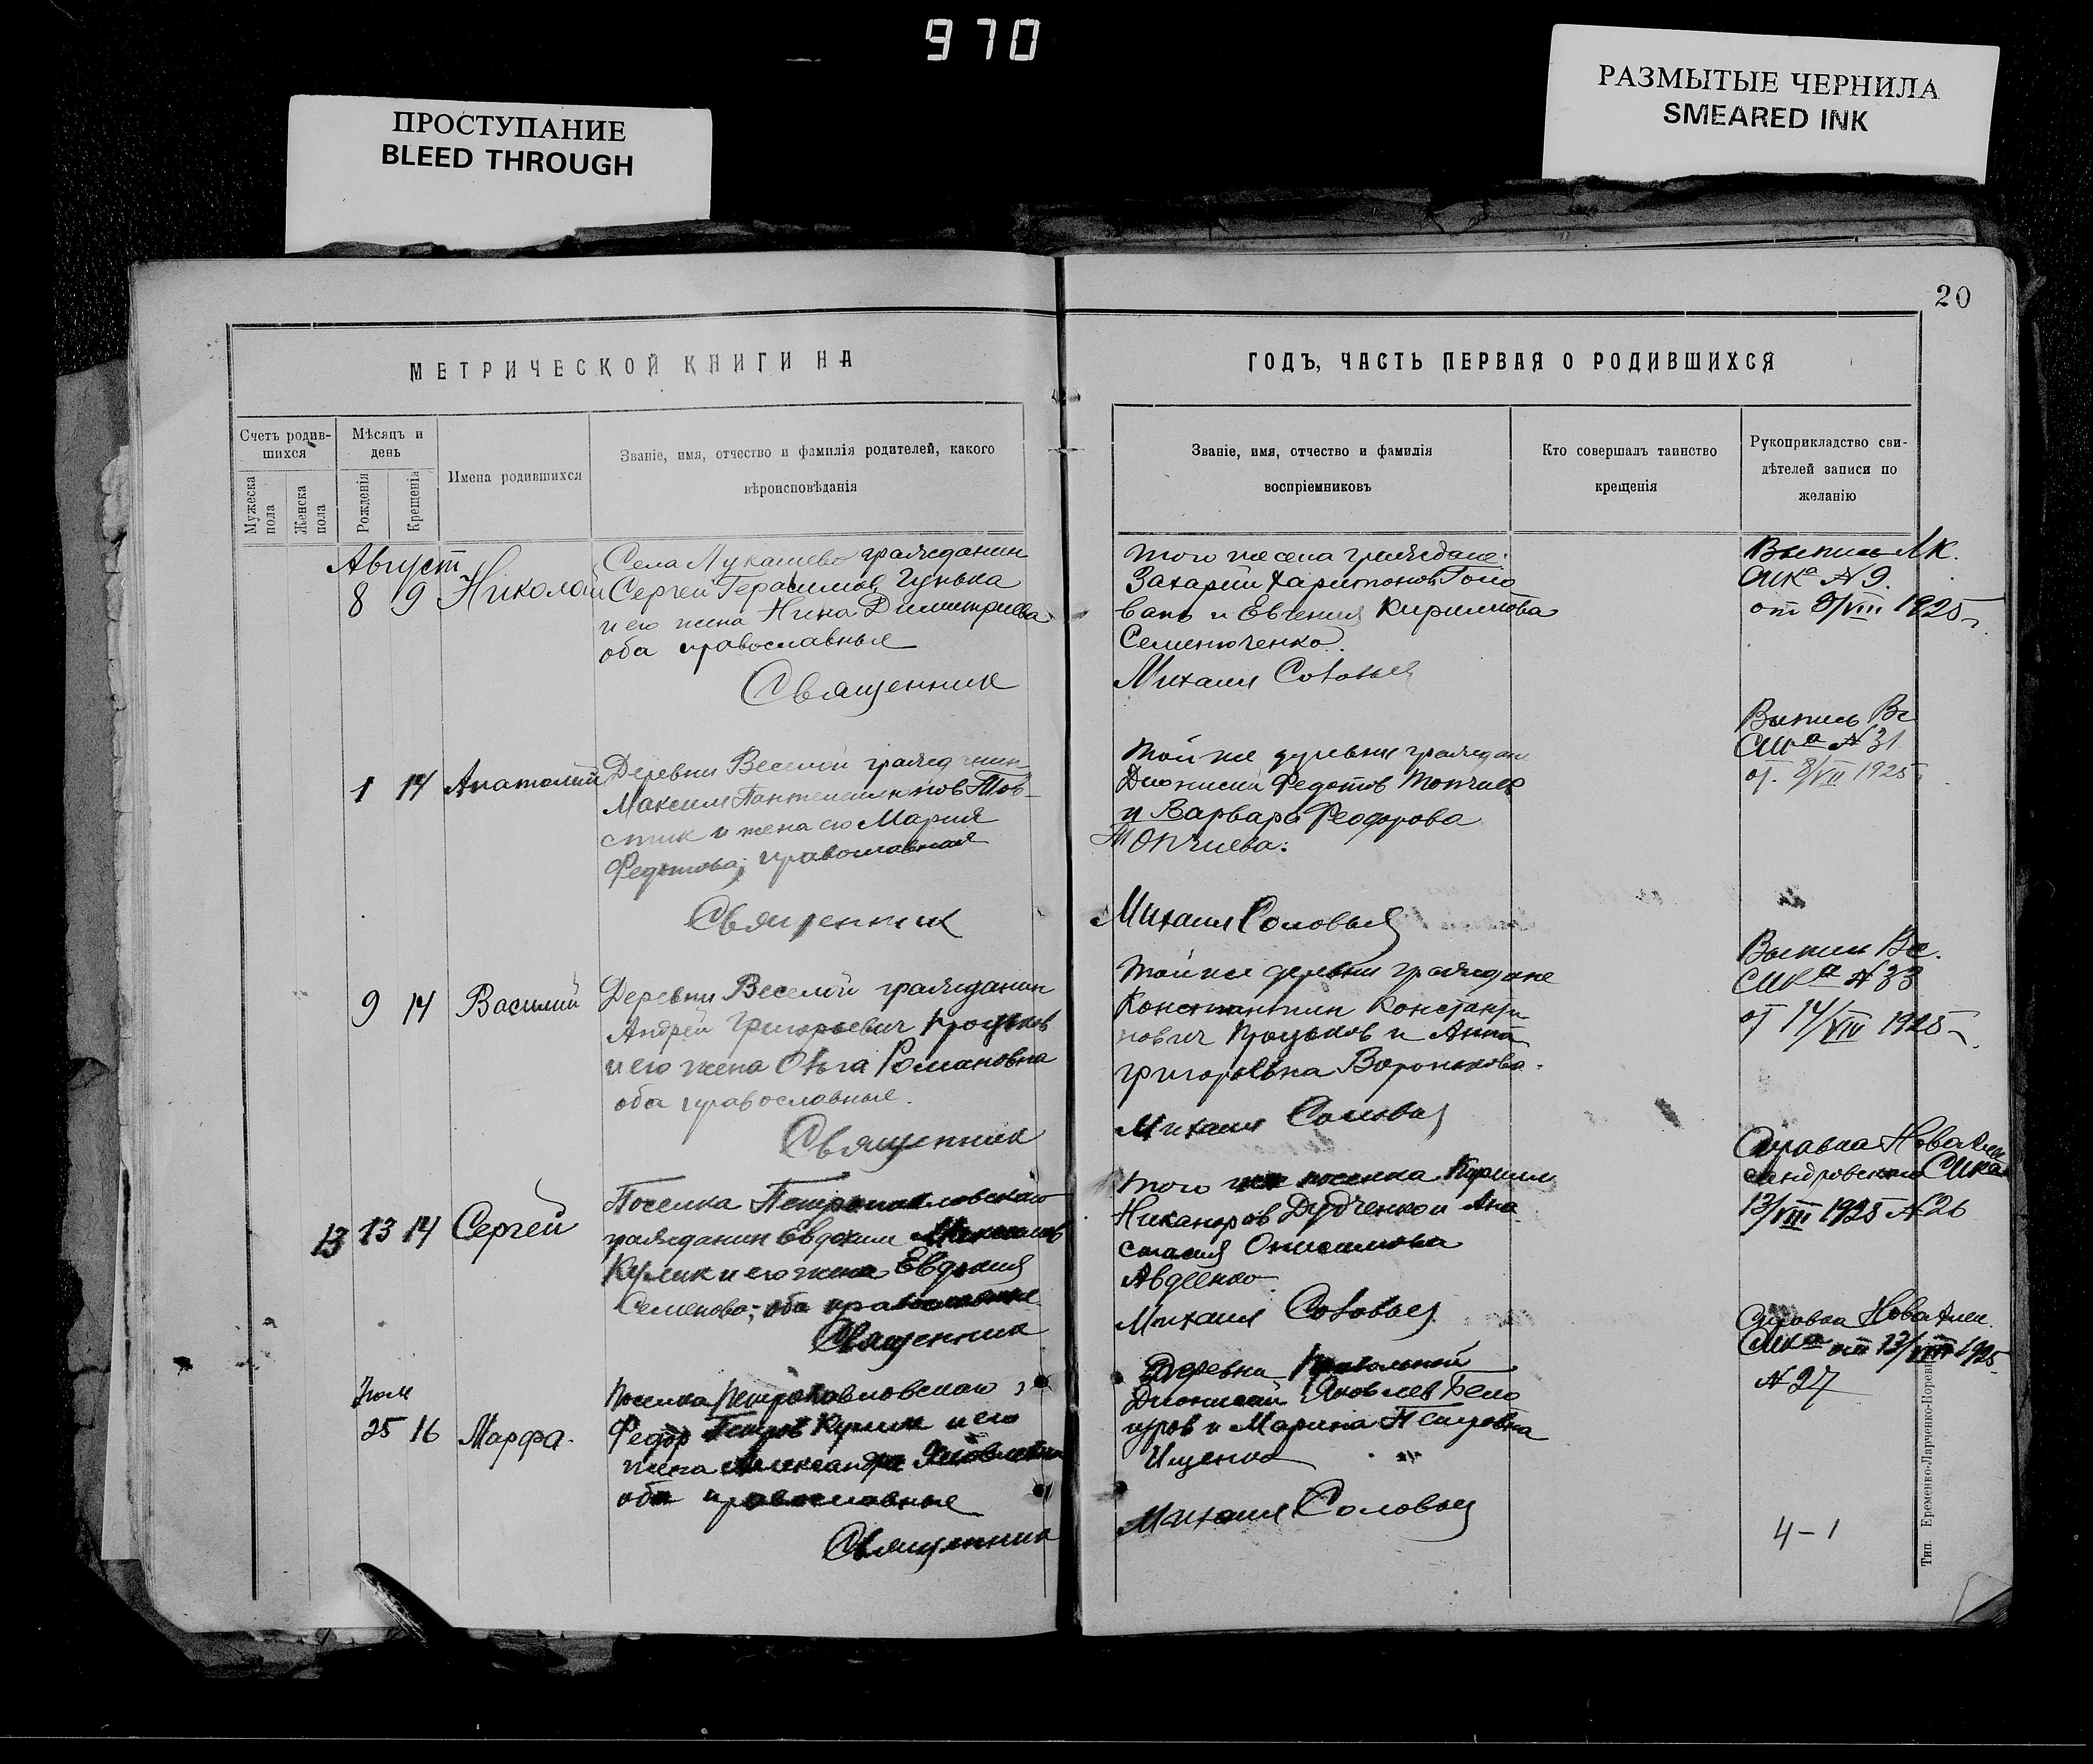 970
ПРОСТУПАНИЕ
BLEED THROUGH
РАЗМЫТЫЕ ЧЕРНИЛА
SMEARED INK
20
МЕТРИЧЕСКОЙ КНИГИ НА
ГОДЪ, ЧАСТЬ ПЕРВАЯ О РОДИВШИХСЯ
Счетъ родив-
шихся
Мужеска
пола
Женска
пола
Мѣсяцъ и
день
Рожденія
Крещенія
Имена родившихся
Званіе, имя, отчество и фамилія родителей, какого
вѣроисповѣданія
Званіе, имя, отчество и фамилія
воспріемниковъ
Кто совершалъ таинство
крещенія
Рукоприкладство сви-
дѣтелей записи по
желанію
Август
8 9 Николай
Села Лукашево гражданин
Сергей Герасимов Гунька
и его жена Нина Димитриева
оба православные
Священник
того же села граждане
Захарий Харитонов Голо
вань и Евгения Кирилова
Семенюченко.
Михаил Соловьев
Выпись Лк.
СИКа №9.
от 8/VIII 1925
1 14 Анатолий
Деревни Веселой гражданин
Максим Пантелеимонов Тов-
стик и жена его Мария
Федотова; православная
Священник
той же деревни граждан
Дионисий Федотов
и Варвара Феодорова
Михаил Соловьев
Выпись Ве
СИКа №31
от 8/VII 1925
9 14 Василий
Деревни Веселой гражданин
Андрей Григорьевич
и его жена Ольга Романовна
оба православные.
Священник
той же деревни граждане
Константин Константи-
нович и Анна
Григорьевна Воронькова.
Михаил Соловьев
Выпись Ве.
СИКа №33
от 14/VIII 1925
13 13 14 Сергей
Поселка Петропавловскаго
гражданин Евдоким
Кулик и его жена Евдокия
Семенова; оба православные
Священник
того же поселка
Никаноров Дудченко и Ана
стасия Онисимова
Авдеенко
Михаил Соловьев
Справка Новоалек
сандровскаго СИКа
13/VIII 1925 №26
Июль
25 16 Марфа.
Поселка Петропавловскаго
Федор Петров и его
жена Александра Яковлевна
оба православные
Священник
Деревни Привольной
Дионисий Яковлев Бело
уров и Марина Петровна
Ищенко
Михаил Соловьев
Справка Новоалек.
СИКа от 13/VIII 1925
№27
4-1
Тип. Еременко-Ларченко-Поревк